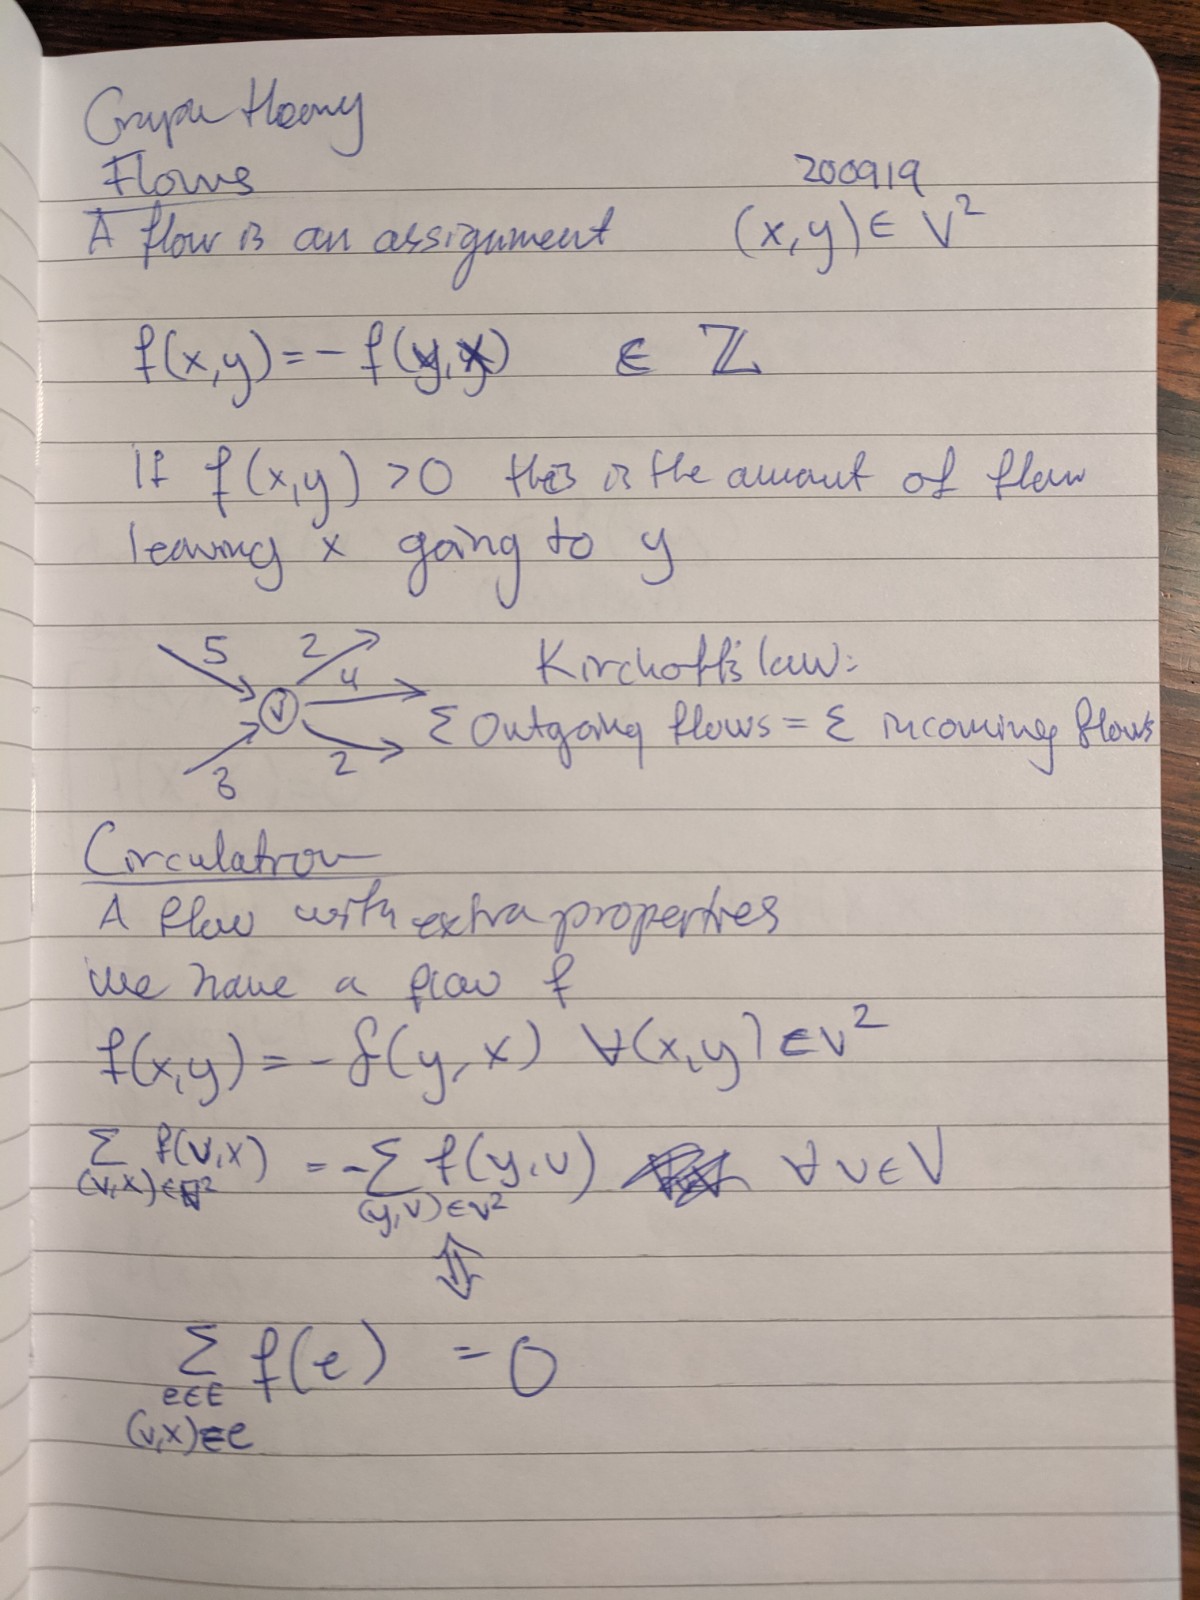 Graph theory
Flows
200919
A flow is an assignment (x,y) ∈ V²
f(x,y) = - f(y,x) ∈ ℤ
If f(x,y) >0 this is the amount of flow
leaving x going to y
5 2 4
v
3 2
Kirchoff's law:
Σ Outgoing flows = Σ incoming flows
Circulation
A flow with extra properties
we have a flow f
f(x,y) = - f(y,x) ∀(x,y) ∈ V²
Σ f(v,x) = -Σ f(y,v) ∀ v ∈ V
(v,x) ∈ V² (y,v) ∈ V²
⇕
Σ f(e) = 0
e∈E
(v,x)=e